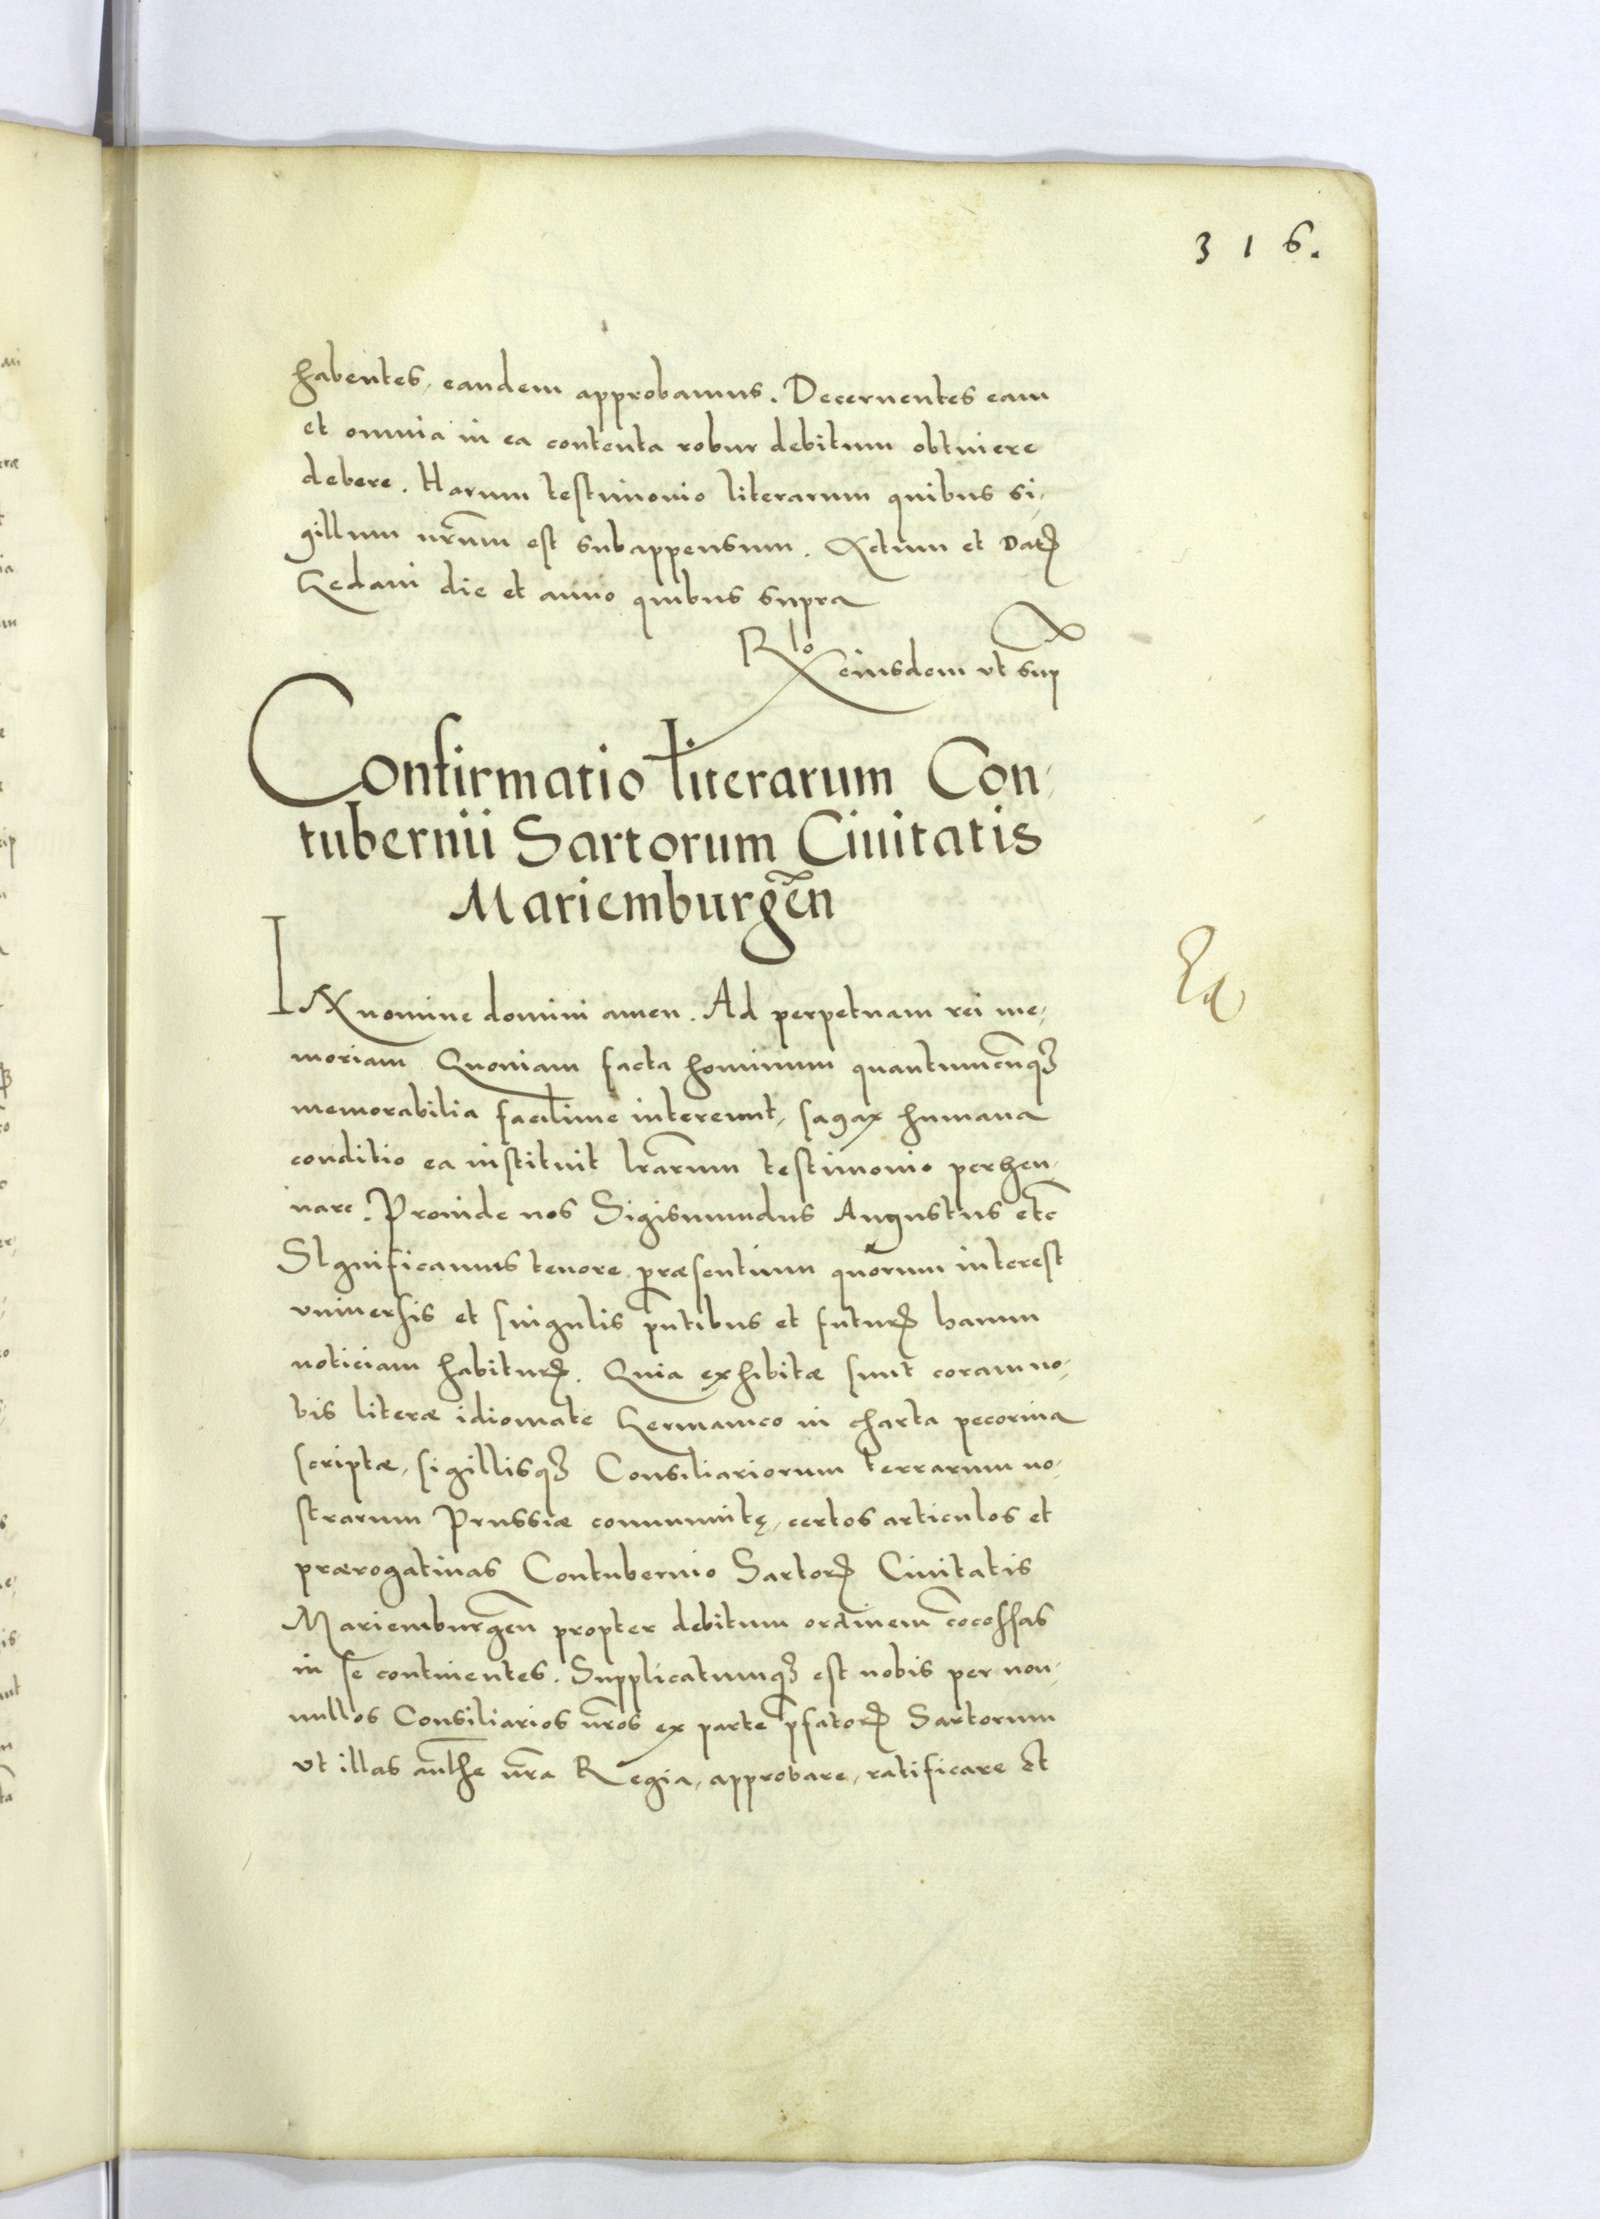 316.
habentes, eandem approbamus. Decernentes eam
et omnia in ea contenta robur debitum obtinere
debere. Harum testimonio literarum quibus si,
gillum nr̃um est subappensum. Actum et Datꝝ
Gedani die et anno quibus supra
Rlo eiusdem vt sup
Confirmatio literarum Con,
tubernii Sartorum Ciuitatis
Mariemburgen̄
IN nomine domini amen. Ad perpetuam rei me,
moriam Quoniam facta hominum quantumcunqꝫ
memorabilia facilime intereunt, sagax humana
conditio ea instituit lr̃arum testimonio perhen,
nare. Proinde nos Sigismundus Augustus etc̄
SIgnificamus tenore præsentium quorum interest
vniuersis et singulis pñtibus et futurꝝ harum
noticiam habiturꝝ. Quia exhibitæ sunt coram no,
bis literæ idiomate Germanico in charta pecorina
scriptæ, sigillisqꝫ Consiliariorum terrarum no,
strarum Prussiæ communitę, certos articulos et
prærogatiuas Contubernio Sartorꝝ Ciuitatis
Mariemburgen̄ propter debitum ordinem cōcessas
in se continentes. Supplicatumqꝫ est nobis per non,
nullos Consiliarios nr̃os ex parte p̄fatorꝝ Sartorum
vt illas auth̄e nr̃a Regia, approbare, ratificare et